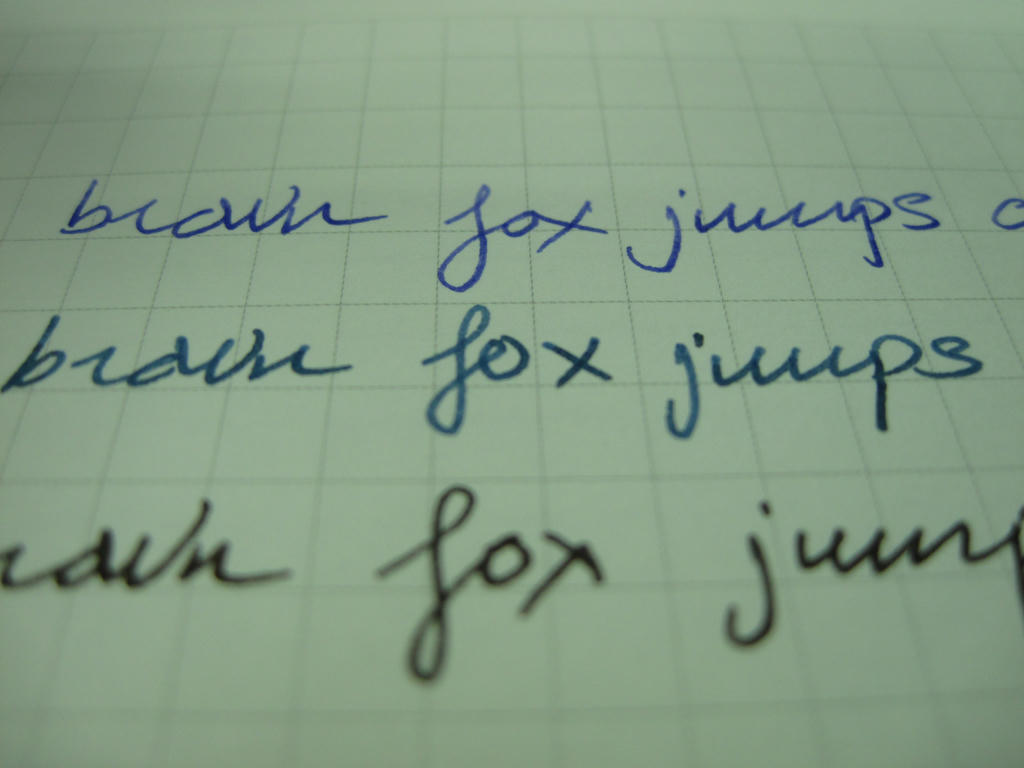 brown fox jumps o
brown fox jumps
rown fox jump